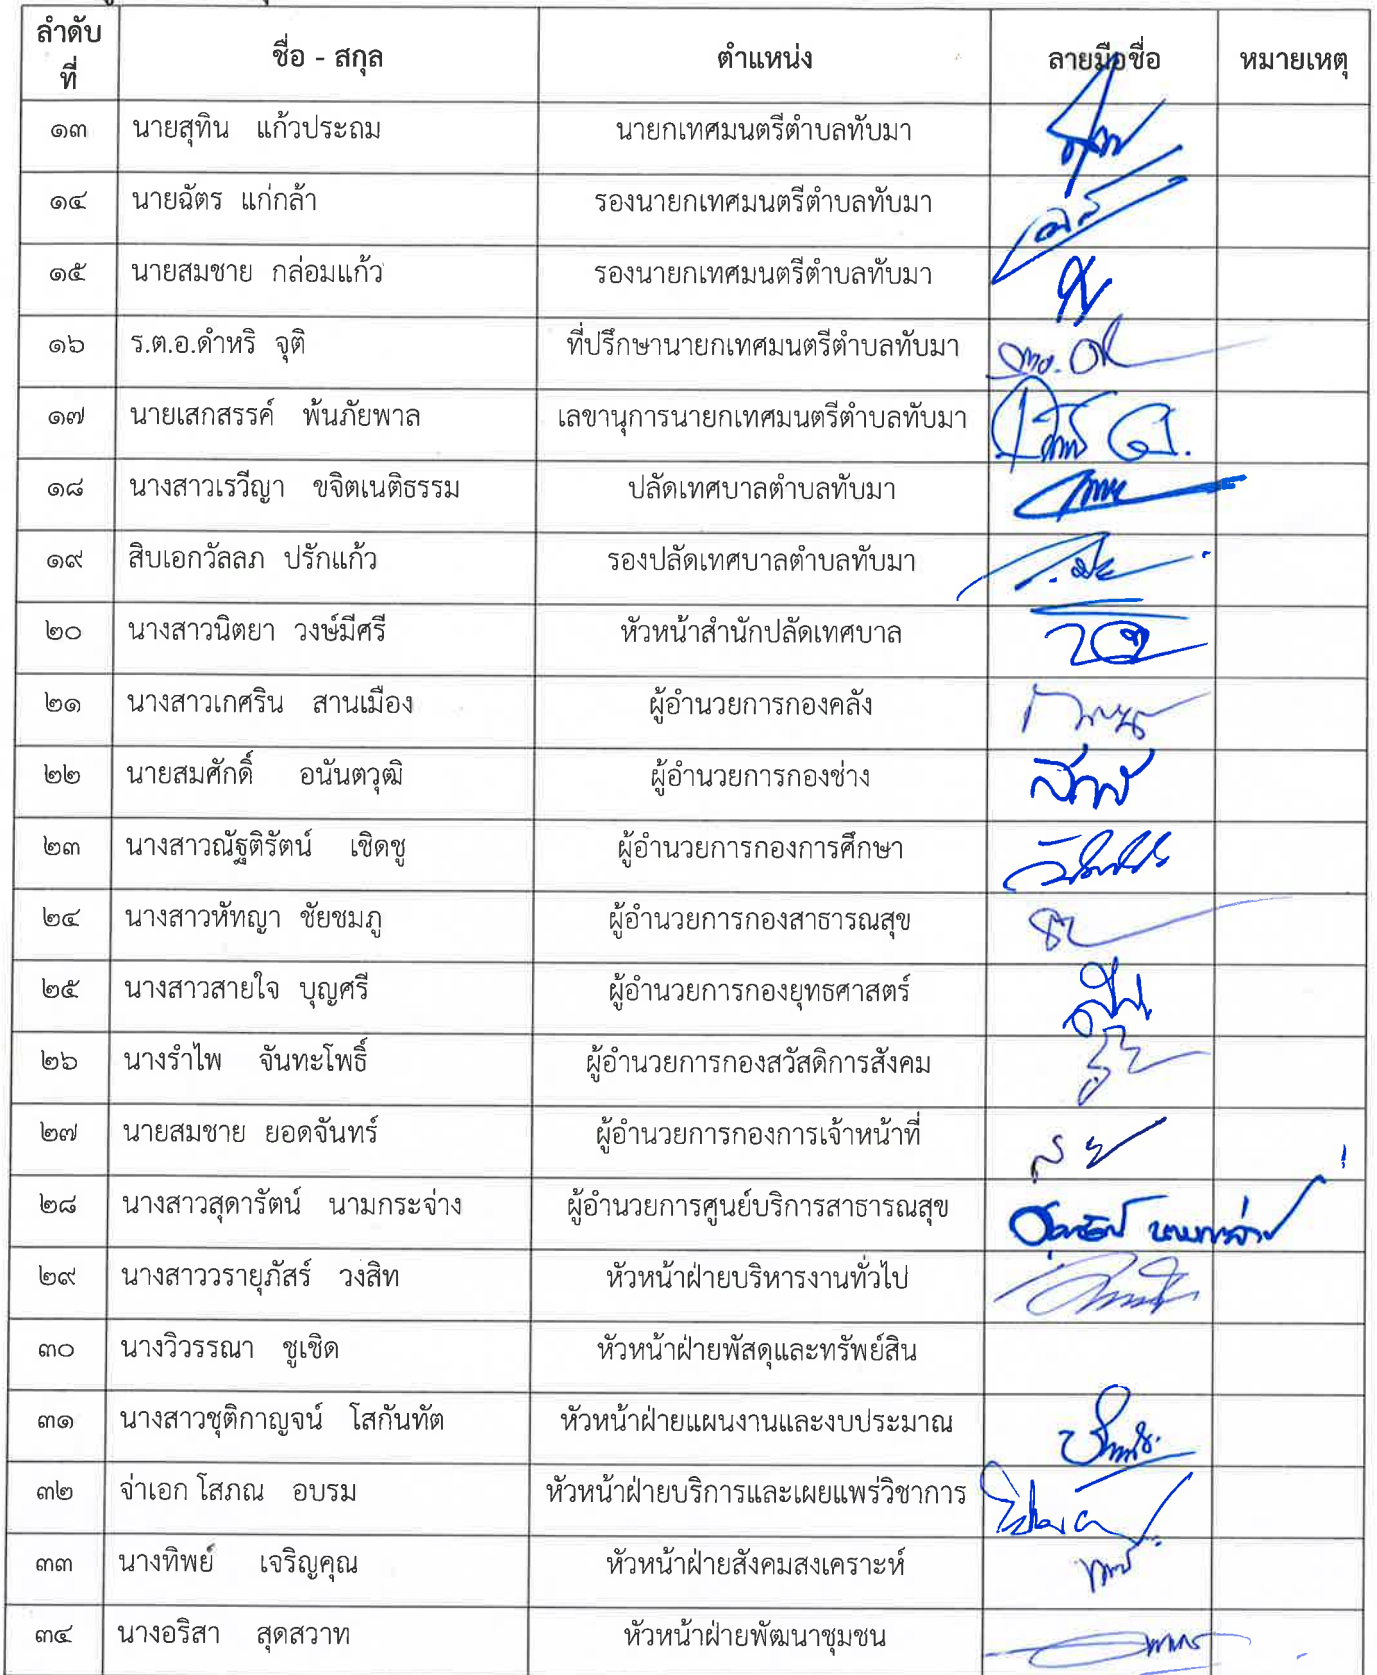 ลำดับที่ ชื่อ - สกุล ตำแหน่ง ลายมือชื่อ หมายเหตุ
๑๓ นายสุทิน แก้วประถม นายกเทศมนตรีตำบลทับมา
๑๔ นายฉัตร แก่กล้า รองนายกเทศมนตรีตำบลทับมา
๑๕ นายสมชาย กล่อมแก้ว รองนายกเทศมนตรีตำบลทับมา
๑๖ ร.ต.อ.ดำหริ จุติ ที่ปรึกษานายกเทศมนตรีตำบลทับมา
๑๗ นายเสกสรรค์ พ้นภัยพาล เลขานุการนายกเทศมนตรีตำบลทับมา
๑๘ นางสาวเรวีญา ขจิตเนติธรรม ปลัดเทศบาลตำบลทับมา
๑๙ สิบเอกวัลลภ ปรักแก้ว รองปลัดเทศบาลตำบลทับมา
๒๐ นางสาวนิตยา วงษ์มีศรี หัวหน้าสำนักปลัดเทศบาล
๒๑ นางสาวเกศริน สานเมือง ผู้อำนวยการกองคลัง
๒๒ นายสมศักดิ์ อนันตวุฒิ ผู้อำนวยการกองช่าง
๒๓ นางสาวณัฐติรัตน์ เชิดชู ผู้อำนวยการกองการศึกษา
๒๔ นางสาวหัทญา ชัยชมภู ผู้อำนวยการกองสาธารณสุข
๒๕ นางสาวสายใจ บุญศรี ผู้อำนวยการกองยุทธศาสตร์
๒๖ นางรำไพ จันทะโพธิ์ ผู้อำนวยการกองสวัสดิการสังคม
๒๗ นายสมชาย ยอดจันทร์ ผู้อำนวยการกองการเจ้าหน้าที่
๒๘ นางสาวสุดารัตน์ นามกระจ่าง ผู้อำนวยการศูนย์บริการสาธารณสุข
๒๙ นางสาววรายุภัสร์ วงสิท หัวหน้าฝ่ายบริหารงานทั่วไป
๓๐ นางวิวรรณา ชูเชิด หัวหน้าฝ่ายพัสดุและทรัพย์สิน
๓๑ นางสาวชุติกาญจน์ โสกันทัต หัวหน้าฝ่ายแผนงานและงบประมาณ
๓๒ จ่าเอก โสภณ อบรม หัวหน้าฝ่ายบริการและเผยแพร่วิชาการ
๓๓ นางทิพย์ เจริญคุณ หัวหน้าฝ่ายสังคมสงเคราะห์
๓๔ นางอริสา สุดสวาท หัวหน้าฝ่ายพัฒนาชุมชน